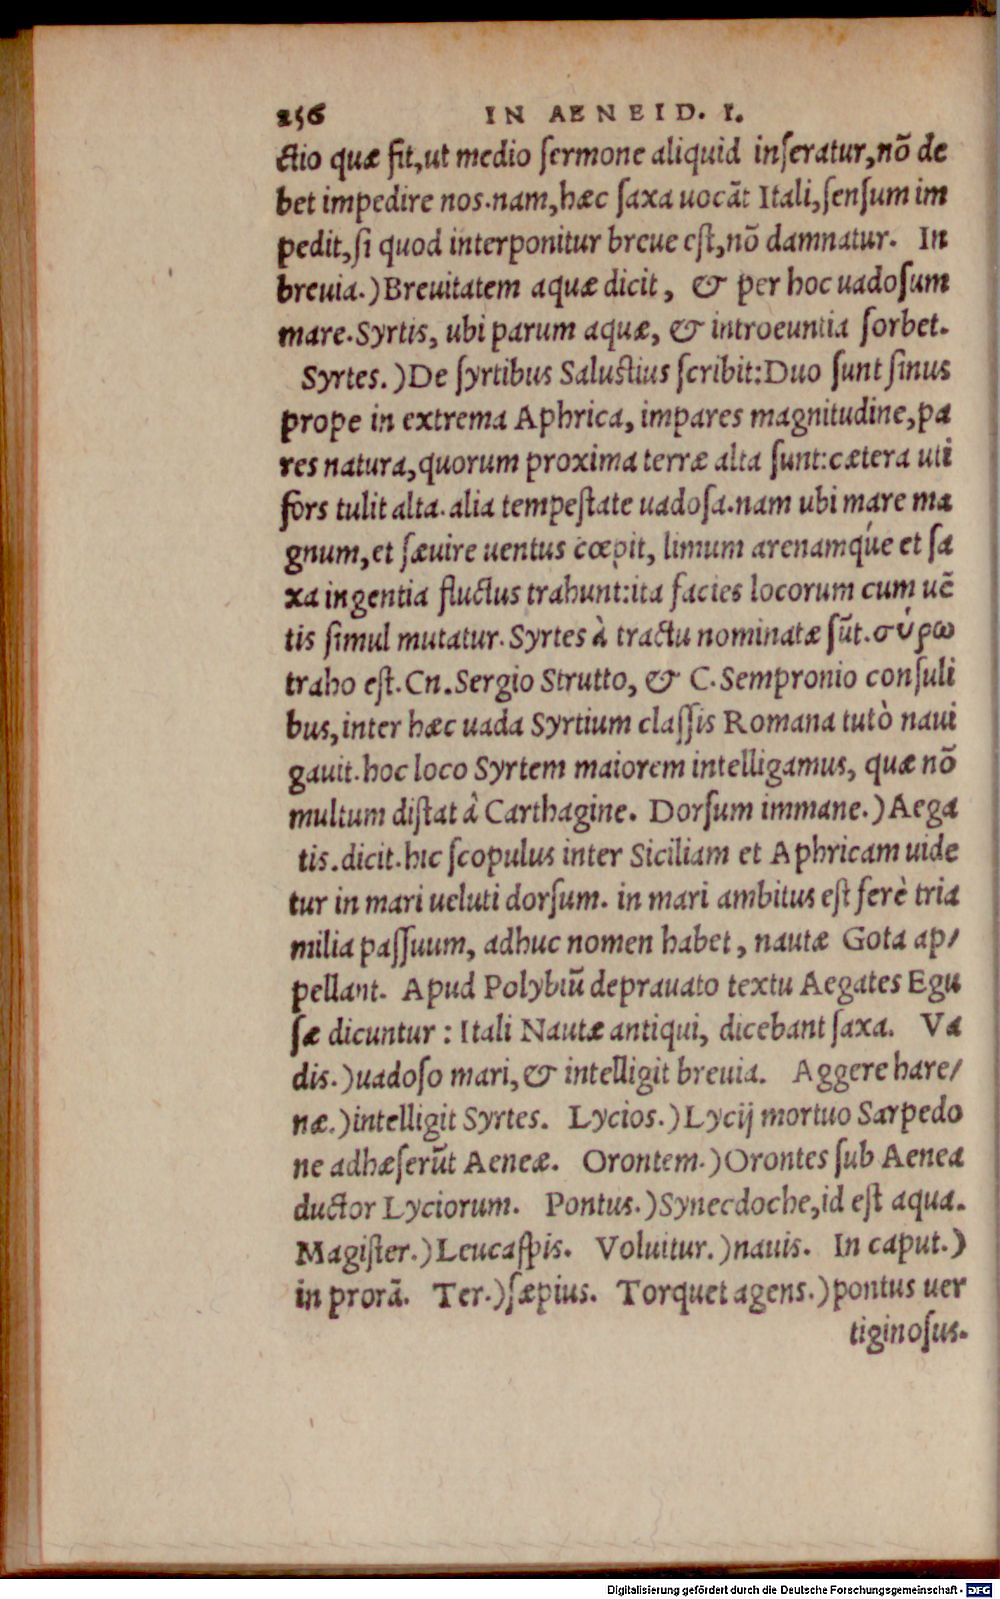 256 IN AENEID. I.
ctio quæ fit, ut medio sermone aliquid inseratur, nō de
bet impedire nos. nam, hæc saxa uocāt Itali, sensum im
pedit, si quod interponitur breue est, nō damnatur. In
breuia.) Breuitatem aquæ dicit, & per hoc uadosum
mare. Syrtis, ubi parum aquæ, & introeuntia sorbet.
Syrtes.) De syrtibus Salustius scribit: Duo sunt sinus
prope in extrema Aphrica, impares magnitudine, pa
res natura, quorum proxima terræ alta sunt: cætera uti
fors tulit alta. alia tempestate uadosa. nam ubi mare ma
gnum, et sæuire uentus cœpit, limum arenamq́ue et sa
xa ingentia fluctus trahunt: ita facies locorum cum uē
tis simul mutatur. Syrtes à tractu nominatæ sūt. σύρω
traho est. Cn. Sergio Strutto, & C. Sempronio consuli
bus, inter hæc uada Syrtium classis Romana tutò naui
gauit. hoc loco Syrtem maiorem intelligamus, quæ nō
multum distat â Carthagine. Dorsum immane.) Aega
tis. dicit. hic scopulus inter Siciliam et Aphricam uide
tur in mari ueluti dorsum. in mari ambitus est ferè tria
milia passuum, adhuc nomen habet, nautæ Gota ap/
pellant. Apud Polybiū deprauato textu Aegates Egu
sæ dicuntur: Itali Nautæ antiqui, dicebant saxa. Va
dis.) uadoso mari, & intelligit breuia. Aggere hare/
næ.) intelligit Syrtes. Lycios.) Lycij mortuo Sarpedo
ne adhæserūt Aeneæ. Orontem.) Orontes sub Aenea
ductor Lyciorum. Pontus.) Synecdoche, id est aqua.
Magister.) Leucaspis. Voluitur.) nauis. In caput.)
in prorā. Ter.) sæpius. Torquet agens.) pontus uer
tiginosus.
Digitalisierung gefördert durch die Deutsche Forschungsgemeinschaft - DFG